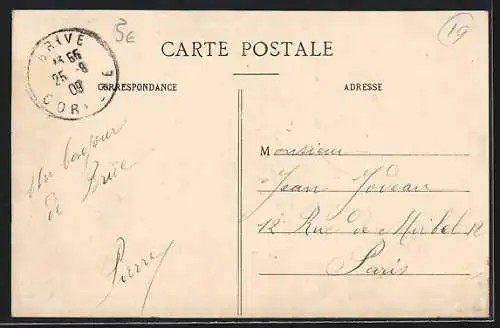 3€
19
CARTE POSTALE
BRIVE
13 55
25 -8
09
CORRÈZE
CORRESPONDANCE
ADRESSE
Un bonjour
de Brive
Pierre
Monsieur
Jean
12 Rue de Mirbel 12
Paris